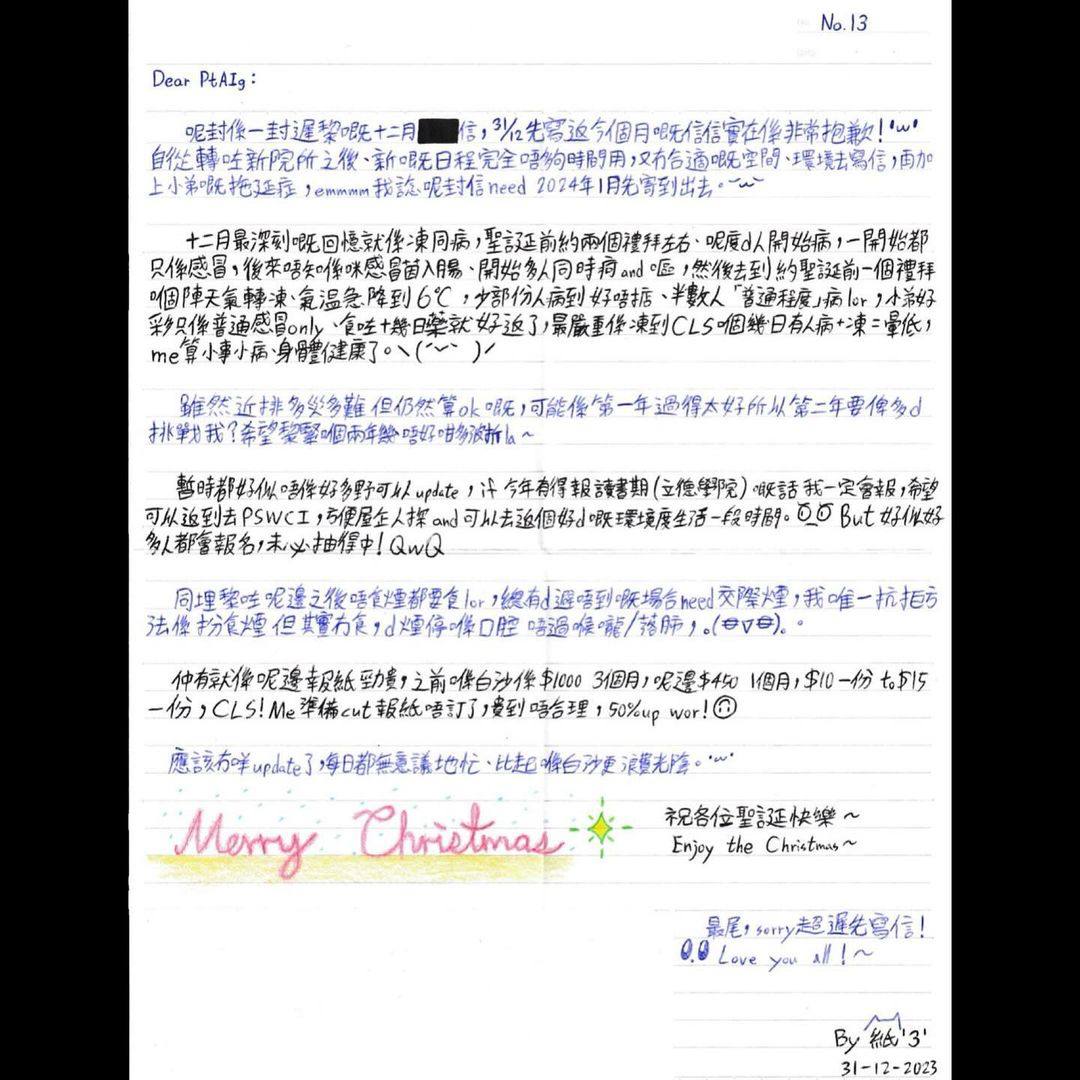 No.13
Dear PtAIg:
呢封係一封遲黎嘅十二月信, 31/12先寫返今個月嘅信信實在係非常抱歉! 'w'
自從轉咗新院所之後、新嘅日程完全唔夠時間用,又冇合適嘅空間、環境去寫信,再加
上小弟嘅拖延症,emmmm我諗呢封信need 2024年1月先寄到出去。
十二月最深刻嘅回憶就係凍同病,聖誕前約兩個禮拜左右、呢度d人開始病,一開始都
只係感冒,後來唔知係咪感冒菌入腸、開始多人同時痾and嘔,然後去到約聖誕前一個禮拜
嗰陣天氣轉凍、氣溫急降到6℃,少部份人病到好唔掂、半數人「普通程度」病lor,小弟好
彩只係普通感冒only、食咗十幾日藥就好返了,最嚴重係凍到CLS嗰幾日有人病+凍=暈低,
me算小事小病、身體健康了。
雖然近排多災多難但仍然算ok嘅,可能係第一年過得太好所以第二年要俾多d
挑戰我?希望黎緊嗰兩年幾唔好咁多波折la~
暫時都好似唔係好多野可以update,如今年有得報讀書期(立德學院)嘅話我一定會報,希望
可以返到去PSWCI,方便屋企人探and可以去返個好d嘅環境度生活一段時間。But好似好
多人都會報名,未必抽得中! QwQ
同埋黎咗呢邊之後唔食煙都要食lor,總有d避唔到嘅場合need交際煙,我唯一抗拒方
法係扮食煙但其實冇食,d煙停喺口腔唔過喉嚨/落肺,
仲有就係呢邊報紙勁貴,之前喺白沙係$1000 3個月,呢邊$450 1個月,$10一份to$15
一份,CLS! Me準備cut報紙唔訂了,貴到唔合理,50%up wor!
應該冇咩update了,每日都無意議地忙、比起喺白沙更浪費光陰。'w'
Merry Christmas
祝各位聖誕快樂~
Enjoy the Christmas~
最尾,sorry超遲先寫信!
Love you all!~
By 紙'3'
31-12-2023